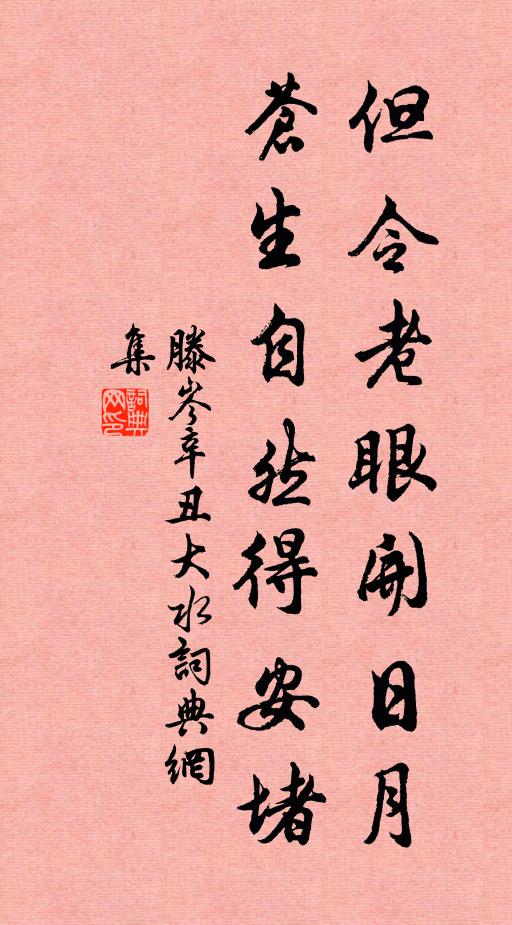 但令老眼開日月
蒼生自然得安堵
滕岑辛丑大水詞典網
集
詞典
网印